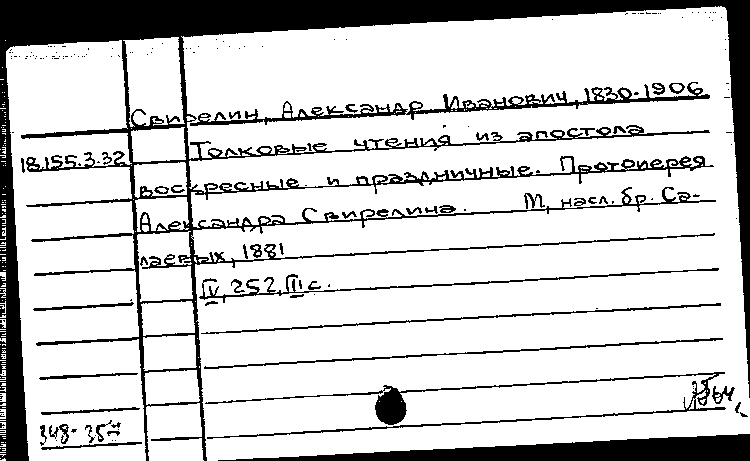 Свирелин, Александр Иванович, 1830-1906
18.155.3.32 Толковые чтения из апостола
воскресные и праздничные. Протоиерея
Александра Свирелина. М, насл. бр. Са-
лаевых, 1881
IV, 252, III с.